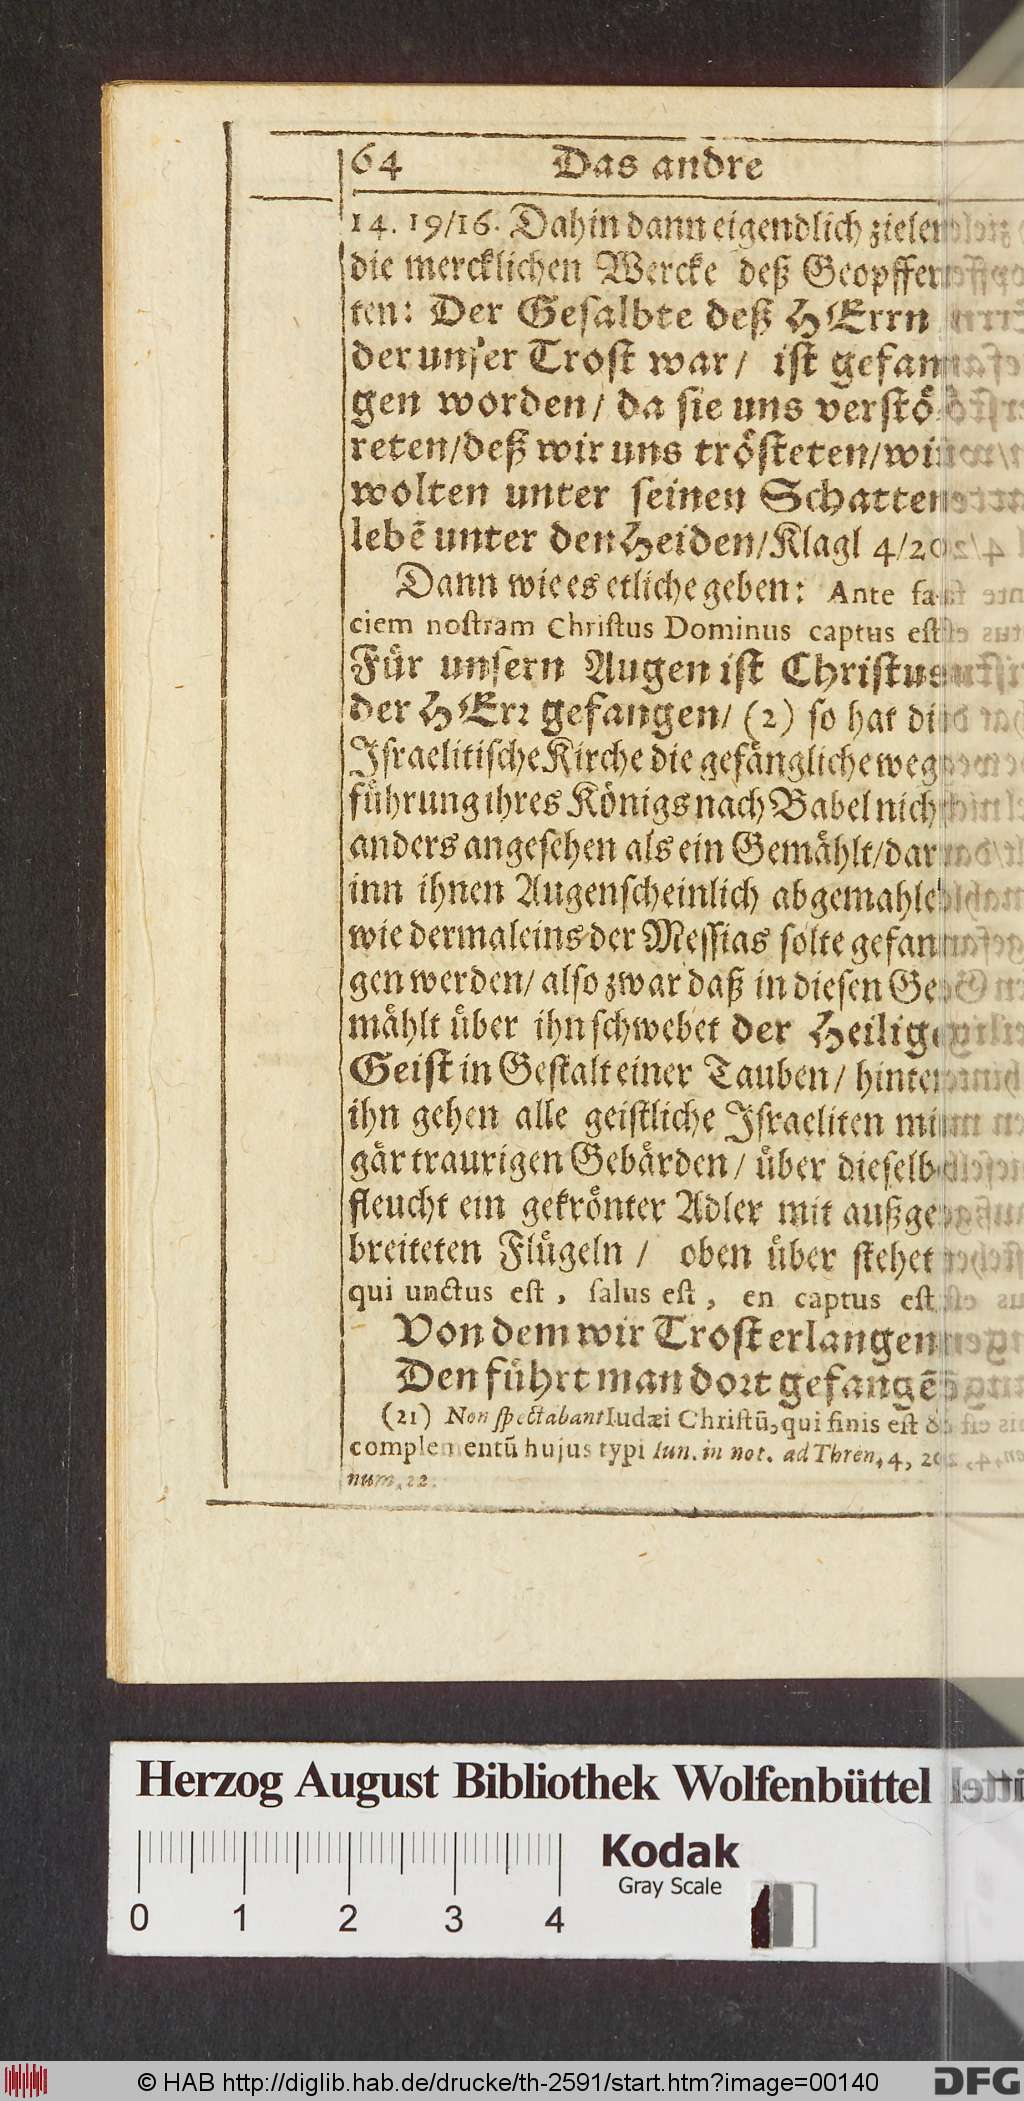 64 Das andre
14. 19/16. Dahin dann eigendlich zielen
die mercklichen Wercke deß Geopffer
ten: Der Gesalbte deß HErrn
der unser Trost war/ ist gefan
gen worden/ da sie uns verstö
reten/deß wir uns trösteten/wir
wolten unter seinen Schatten
lebē unter den Heiden/Klagl 4/20
Dann wie es etliche geben: Ante fa-
ciem nostram Christus Dominus captus est
Für unsern Augen ist Christus
der HErr gefangen/ (2) so hat di
Israelitische Kirche die gefängliche weg
führung ihres Königs nach Babel nich
anders angesehen als ein Gemählt/dar
inn ihnen Augenscheinlich abgemahle
wie dermaleins der Messias solte gefan
gen werden/ also zwar daß in diesen Ge
mählt über ihn schwebet der Heilig
Geist in Gestalt einer Tauben/ hinter
ihn gehen alle geistliche Israeliten mi
gär traurigen Gebärden/ über dieselb
fleucht ein gekrönter Adler mit außge
breiteten Flügeln / oben über stehet
qui unctus est, salus est, en captus est
Von dem wir Trost erlangen
Den führt man dort gefangē
(21) Non spectabant Iudæi Christū, qui finis est &
complementū hujus typi Iun. in not. ad Thren. 4, 20
num. 22.
Herzog August Bibliothek Wolfenbüttel
Kodak
Gray Scale
0 1 2 3 4
© HAB http://diglib.hab.de/drucke/th-2591/start.htm?image=00140 DFG